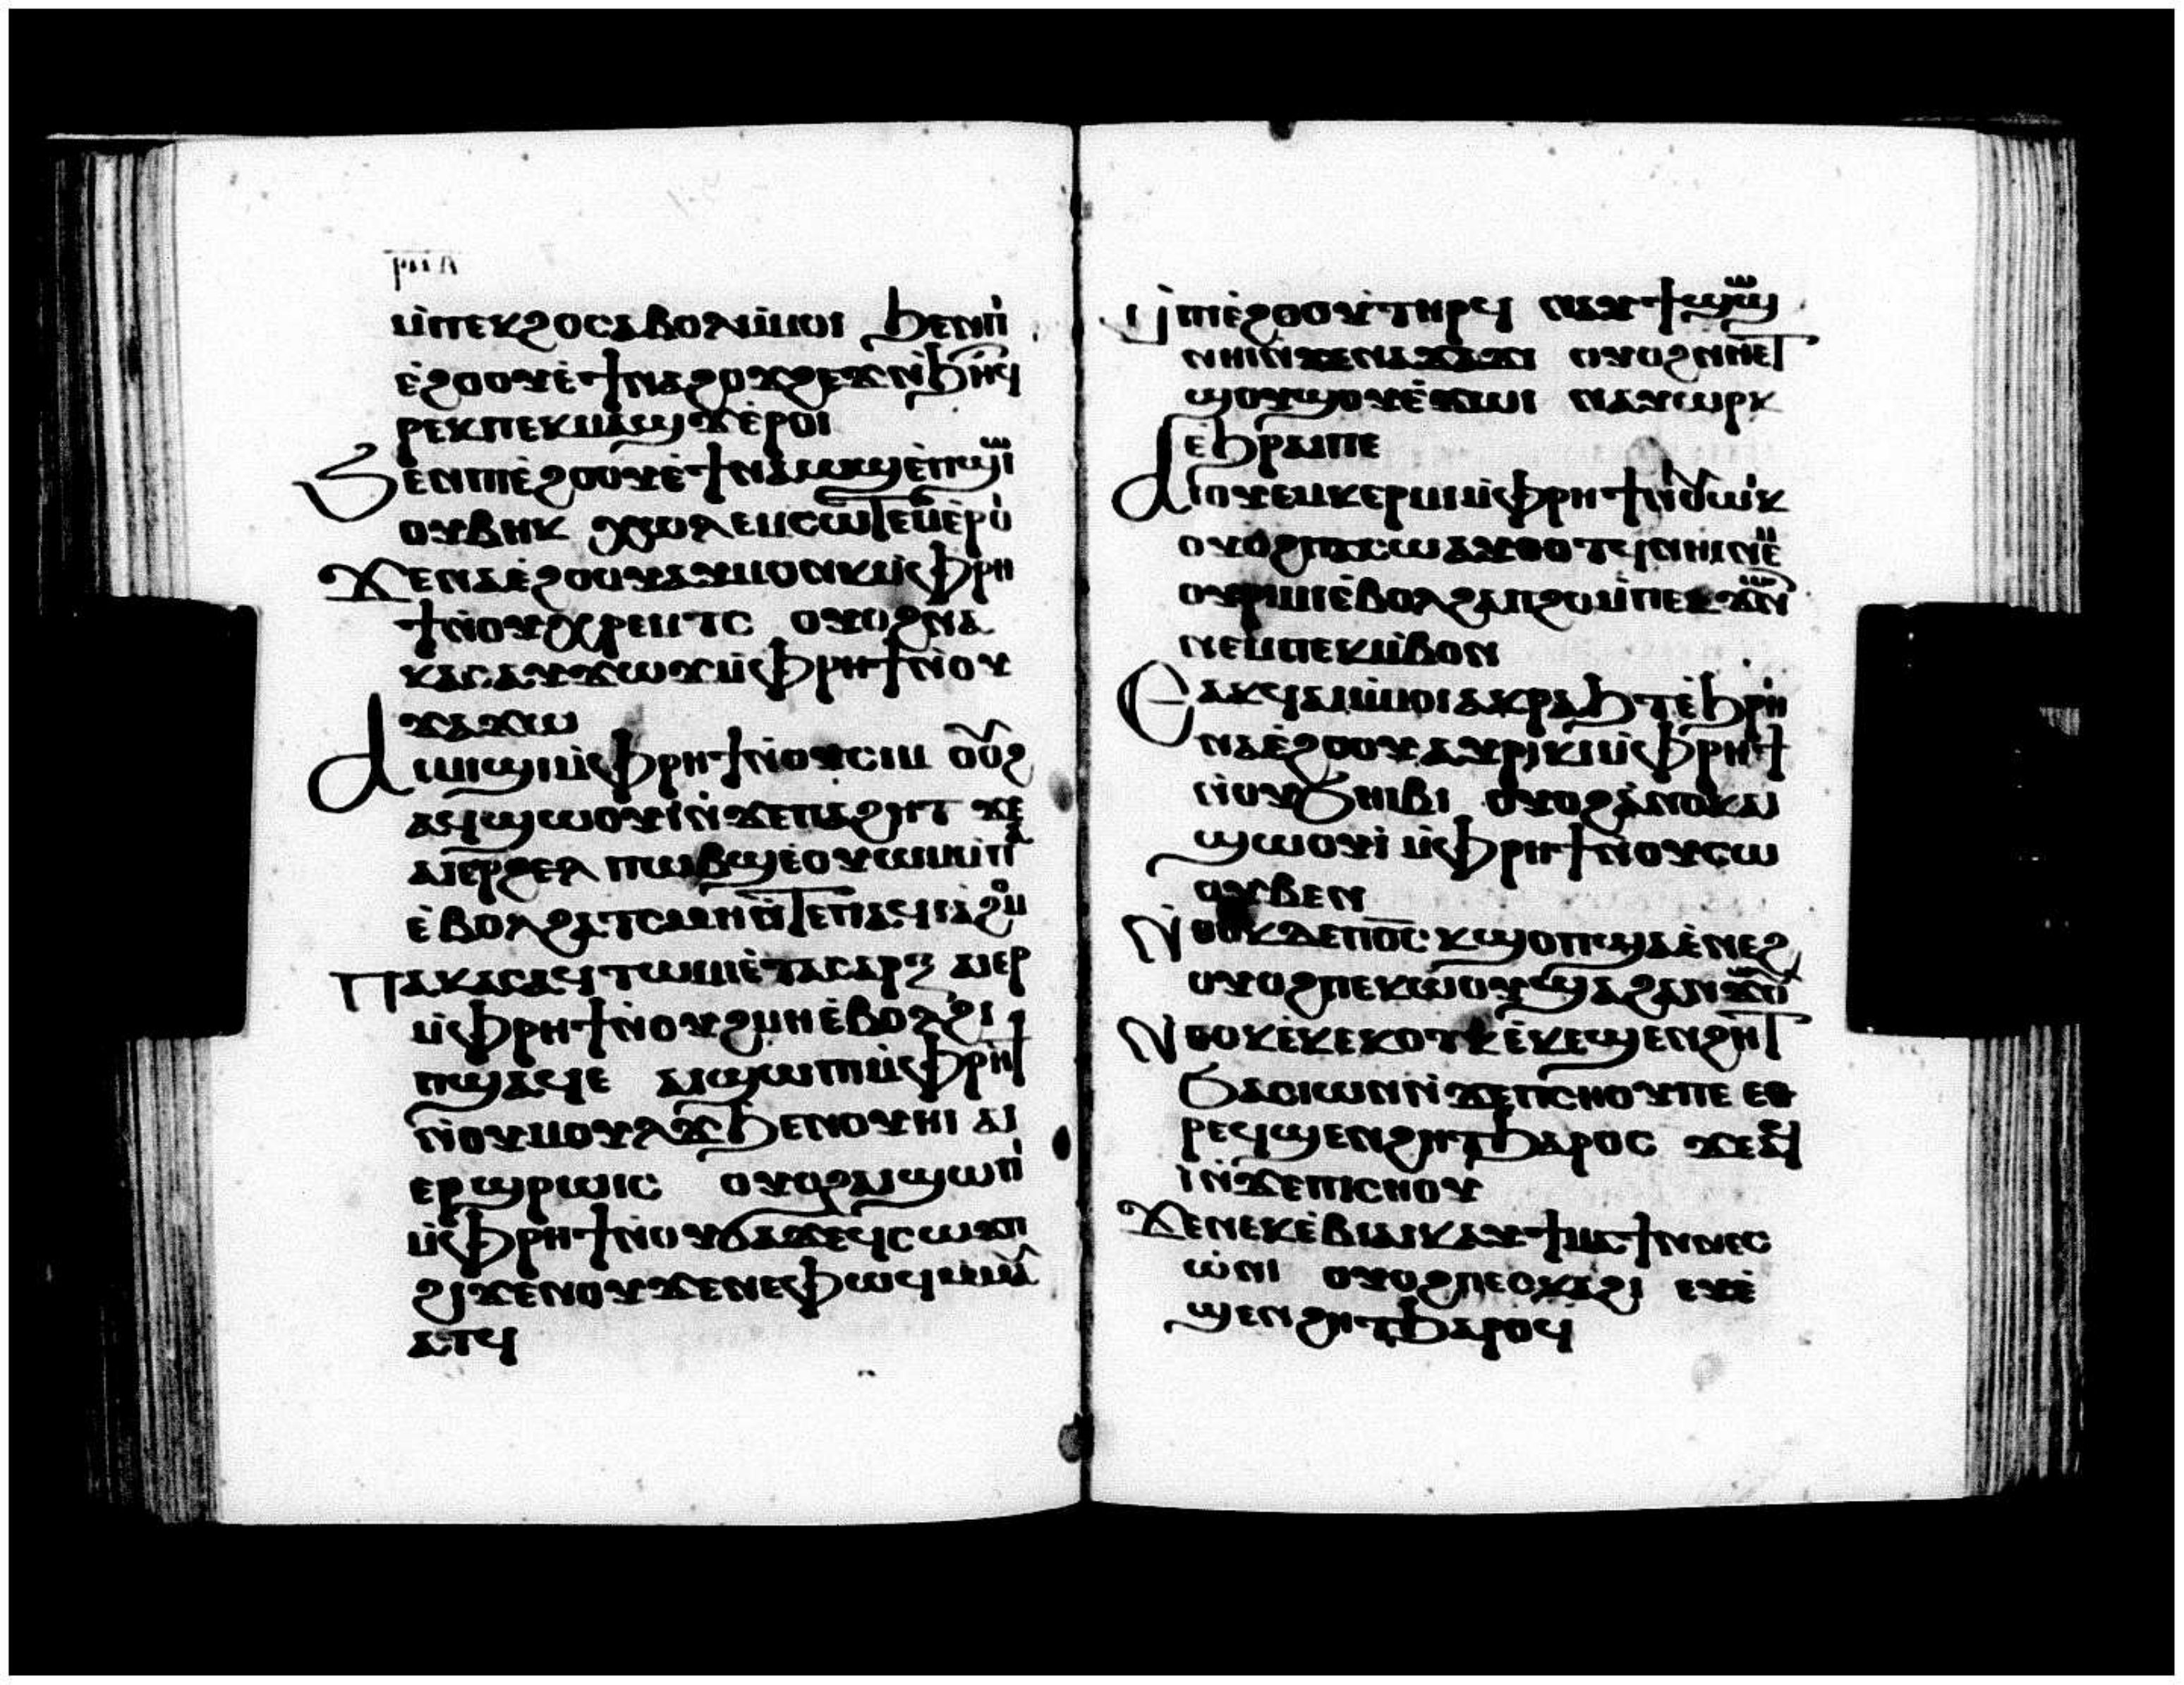 ⲣⲙⲁ
ⲙ̀ⲡⲉⲕϩⲟⲥⲁⲃⲟⲗⲙ̀ⲙⲟⲓ ϧⲉⲛⲡⲓ
ⲉ̀ϩⲟⲟⲩⲉ̀ϯⲛⲁϩⲟϫϩⲉϫⲛ̀ϧⲏⲧϥ
ⲣⲉⲕⲡⲉⲕⲙⲁϣϫⲉ̀ⲣⲟⲓ
ϧⲉⲛⲡⲓⲉ̀ϩⲟⲟⲩⲉ̀ϯⲛⲁⲱϣⲉ̀ⲡϣⲱⲓ
ⲟⲩⲃⲏⲕ ⲭⲱⲗⲉⲙⲥⲱⲧⲉⲙⲉ̀ⲣⲟⲓ
ϫⲉⲛⲁⲉ̀ϩⲟⲟⲩⲁⲩⲙⲟⲩⲛⲕⲙ̀ⲫⲣⲏ
ϯⲛ̀ⲟⲩⲭⲣⲉⲙⲧⲥ ⲟⲩⲟϩⲛⲁ
ⲕⲁⲥⲁⲩϫⲱϫⲙ̀ⲫⲣⲏϯⲛ̀ⲟⲩ
ϫⲁϫⲓⲱ
ⲁⲓⲱϣⲓⲙ̀ⲫⲣⲏϯⲛ̀ⲟⲩⲥⲓⲙ ⲟⲩⲟϩ
ⲁϥϣⲱⲟⲩⲓⲛ̀ϫⲉⲡⲁϩⲏⲧ ϫⲉ
ⲁⲓⲉⲣϩⲉⲗ ⲡⲱⲃϣⲉ̀ⲟⲩⲱⲙⲙ̀ⲡⲁ
ⲉ̀ⲃⲟⲗϩⲁⲧⲥⲙⲏⲛ̀ⲧⲉⲡⲁϥⲓⲁ̀ϩⲟⲙ
ⲡⲁⲕⲁⲥⲁϥⲧⲱⲙⲓⲉ̀ⲧⲁⲥⲁⲣⲝ ⲁⲓⲉⲣ
ⲙ̀ⲫⲣⲏϯⲛ̀ⲟⲩϩⲙⲏⲉ̀ⲃⲟⲗϩⲓ
ⲡϣⲁϥⲉ ⲁⲓϣⲱⲡⲓⲙ̀ⲫⲣⲏϯ
ⲛ̀ⲟⲩⲙⲟⲩⲗⲁϫϧⲉⲛⲟⲩⲏⲓ ⲁⲓ
ⲉⲣϣⲣⲱⲓⲥ ⲟⲩⲟϩⲁⲓϣⲱⲡⲓ
ⲙ̀ⲫⲣⲏϯⲛ̀ⲟⲩϭⲁϫⲉϥⲥⲱϫⲡ
ϩⲓϫⲉⲛⲟⲩϫⲉⲛⲉⲫⲱϥⲙ̀ⲙⲁⲩ
ⲁⲧϥ
ⲙ̀ⲡⲓⲉ̀ϩⲟⲟⲩⲧⲏⲣϥ ⲛⲁⲩϯϣⲱϣ
ⲛⲏⲓⲛ̀ϫⲉⲛⲁϫⲁϫⲓ ⲟⲩⲟϩⲛⲏⲉⲧ
ϣⲟⲩϣⲟⲩⲉ̀ϫⲱⲓ ⲛⲁⲩⲱⲣⲕ
ⲉϧⲣⲁⲓⲡⲉ
ⲁⲓⲟⲩⲉⲙⲕⲉⲣⲙⲓⲙ̀ⲫⲣⲏϯⲛ̀ⲟⲩⲱⲓⲕ
ⲟⲩⲟϩⲡⲁⲥⲱⲁⲩⲑⲟⲧϥⲛⲏⲓⲛⲉⲙ
ⲟⲩⲣⲓⲙⲓⲉ̀ⲃⲟⲗϩⲁⲡϩⲟⲙ̀ⲡⲉⲕϫⲱⲛⲧ
ⲛⲉⲙⲡⲉⲕⲙ̀ⲃⲟⲛ
ⲉⲁⲕϥⲁⲓⲙ̀ⲙⲟⲓⲁⲕⲣⲁϧⲧⲉ̀ϧⲣⲏⲓ
ⲛⲁⲉ̀ϩⲟⲟⲩⲁⲩⲣⲓⲕⲓⲙ̀ⲫⲣⲏϯ
ⲛ̀ⲟⲩϧⲏⲓⲃⲓ ⲟⲩⲟϩⲁ̀ⲛⲟⲕⲁⲓ
ϣⲱⲟⲩⲓ ⲙ̀ⲫⲣⲏϯⲛ̀ⲟⲩⲥⲱ
ⲟⲩⲃⲉⲛ
ⲛ̀ⲑⲟⲕⲇⲉⲡⲟ̅ⲥ̅ⲕϣⲟⲡϣⲁⲉ̀ⲛⲉϩ
ⲟⲩⲟϩⲡⲉⲕⲱⲟⲩϣⲁϩⲁⲛϫⲱⲟⲩ
ⲛ̀ⲑⲟⲕⲉ̀ⲕⲉⲕⲟⲧⲕ ⲉ̀ⲕⲉϣⲉⲛϩⲏⲧ
ϧⲁⲥⲓⲱⲛⲛ̀ϫⲉⲡⲥⲏⲟⲩⲡⲉ ⲉⲑ
ⲣⲉϥϣⲉⲛϩⲏⲧϧⲁⲣⲟⲥ ϫⲉⲁϥ
ⲓⲛ̀ϫⲉⲡⲓⲥⲏⲟⲩ
ϫⲉⲛⲉⲕⲉ̀ⲃⲓⲁⲓⲕⲁⲩϯⲙⲁϯⲛⲛⲉⲥ
ⲱ̀ⲛⲓ ⲟⲩⲟϩⲡⲉⲥⲕⲁϩⲓ ⲉⲩⲉ̀
ϣⲉⲛϩⲏⲧϧⲁⲣⲟϥ